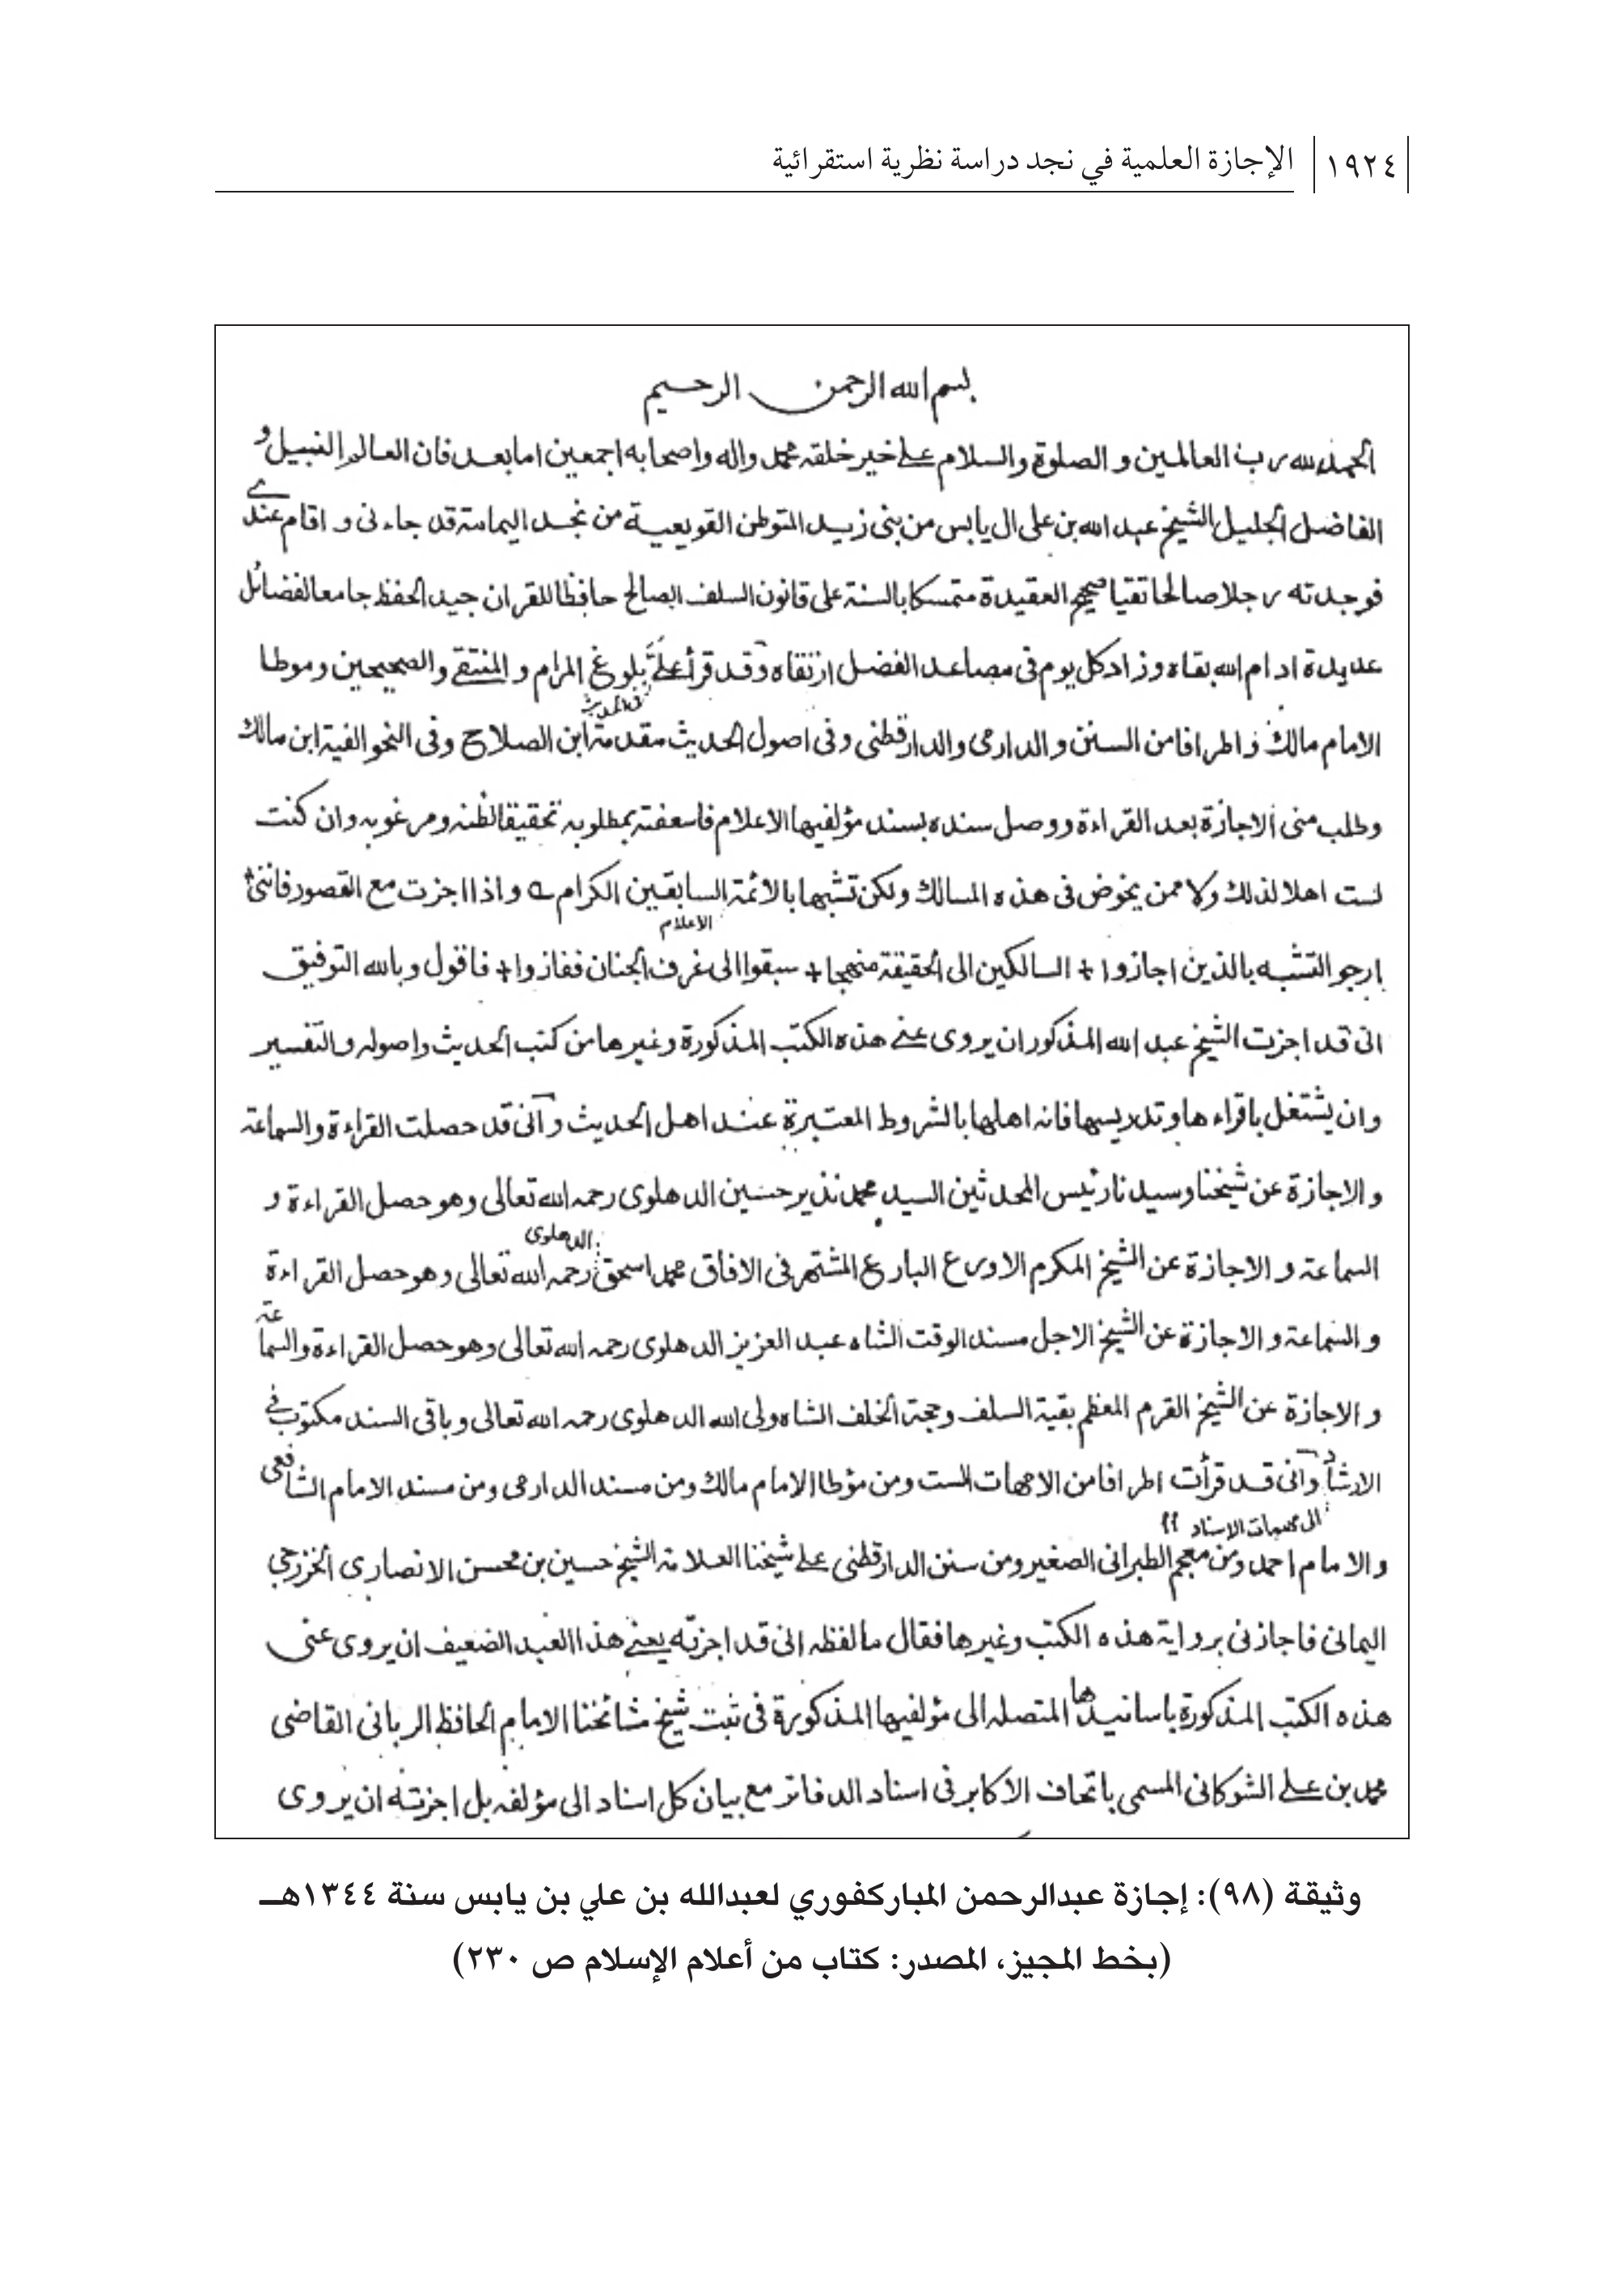 ١٩٢٤ الإجازة العلمية في نجد دراسة نظرية استقرائية
بسم الله الرحمن الرحيم
الحمد لله رب العالمين و الصلوة والسلام على خير خلقه محمد واله واصحابه اجمعين اما بعد فان العالم النبيل و
الفاضل الجليل الشيخ عبد الله بن على ال يابس من بنى زيد المتوطن القويعية من نجد اليمامة قد جاءنى و اقام عندى
فوجدته رجلا صالحا تقيا صحيح العقيدة متمسكا بالسنة على قانون السلف الصالح حافظا للقران جيد الحفظ جامعا لفضائل
عديدة ادام الله بقاه وزاد كل يوم فى مصاعد الفضل ارتقاه وقد قرأ على بلوغ المرام و المنتقى والصحيحين وموطا
الامام مالك واطرافا من السنن و الدارمى والدارقطنى وفى اصول الحديث مقدمة ابن الصلاح وفى النحو الفية ابن مالك
وطلب منى الاجازة بعد القراءة ووصل سنده بسند مؤلفيها الاعلام فاسعفته بمطلوبه تحقيقا لظنه ومرغوبه وان كنت
لست اهلا لذلك ولا ممن يخوض فى هذه المسالك ولكن تشبها بالائمة السابقين الكرام واذا اجزت مع القصور فاننى
الاعلام
ارجو التشبه بالذين اجازوا + السالكين الى الحقيقة منهجا + سبقوا الى غرف الجنان ففازوا + فاقول وبالله التوفيق
انى قد اجزت الشيخ عبد الله المذكور ان يروى عنى هذه الكتب المذكورة وغيرها من كتب الحديث واصوله والتفسير
وان يشتغل باقراءها وتدريسها فانه اهلها بالشروط المعتبرة عند اهل الحديث وانى قد حصلت القراءة والسماعة
والاجازة عن شيخنا وسيدنا رئيس المحدثين السيد محمد نذير حسين الدهلوى رحمه الله تعالى وهو حصل القراءة و
الدهلوى
السماعة و الاجازة عن الشيخ المكرم الاورع البارع المشتهر فى الافاق محمد اسحق رحمه الله تعالى وهو حصل القراءة
و السماعة و الاجازة عن الشيخ الاجل مسند الوقت الشاه عبد العزيز الدهلوى رحمه الله تعالى وهو حصل القراءة والسماعة
و الاجازة عن الشيخ القرم المعظم بقية السلف وحجة الخلف الشاه ولى الله الدهلوى رحمه الله تعالى وباقى السند مكتوب فى
الارشاد وانى قد قرأت اطرافا من الامهات الست ومن مؤطا الامام مالك ومن مسند الدارمى ومن مسند الامام الشافعى
الى مهمات الاسناد
والامام احمد ومن معجم الطبرانى الصغير ومن سنن الدارقطنى على شيخنا العلامة الشيخ حسين بن محسن الانصارى الخزرجى
اليمانى فاجازنى برواية هذه الكتب وغيرها فقال ما لفظه انى قد اجزته يعنى هذا العبد الضعيف ان يروى عنى
هذه الكتب المذكورة باسانيدها المتصله الى مؤلفيها المذكورة فى ثبت شيخ مشائخنا الامام الحافظ الربانى القاضى
محمد بن على الشوكانى المسمى باتحاف الاكابر فى اسناد الدفاتر مع بيان كل اسناد الى مؤلفه بل اجزته ان يروى
وثيقة (٩٨): إجازة عبدالرحمن المباركفوري لعبدالله بن علي بن يابس سنة ١٣٤٤هـ
(بخط المجيز، المصدر: كتاب من أعلام الإسلام ص ٢٣٠)